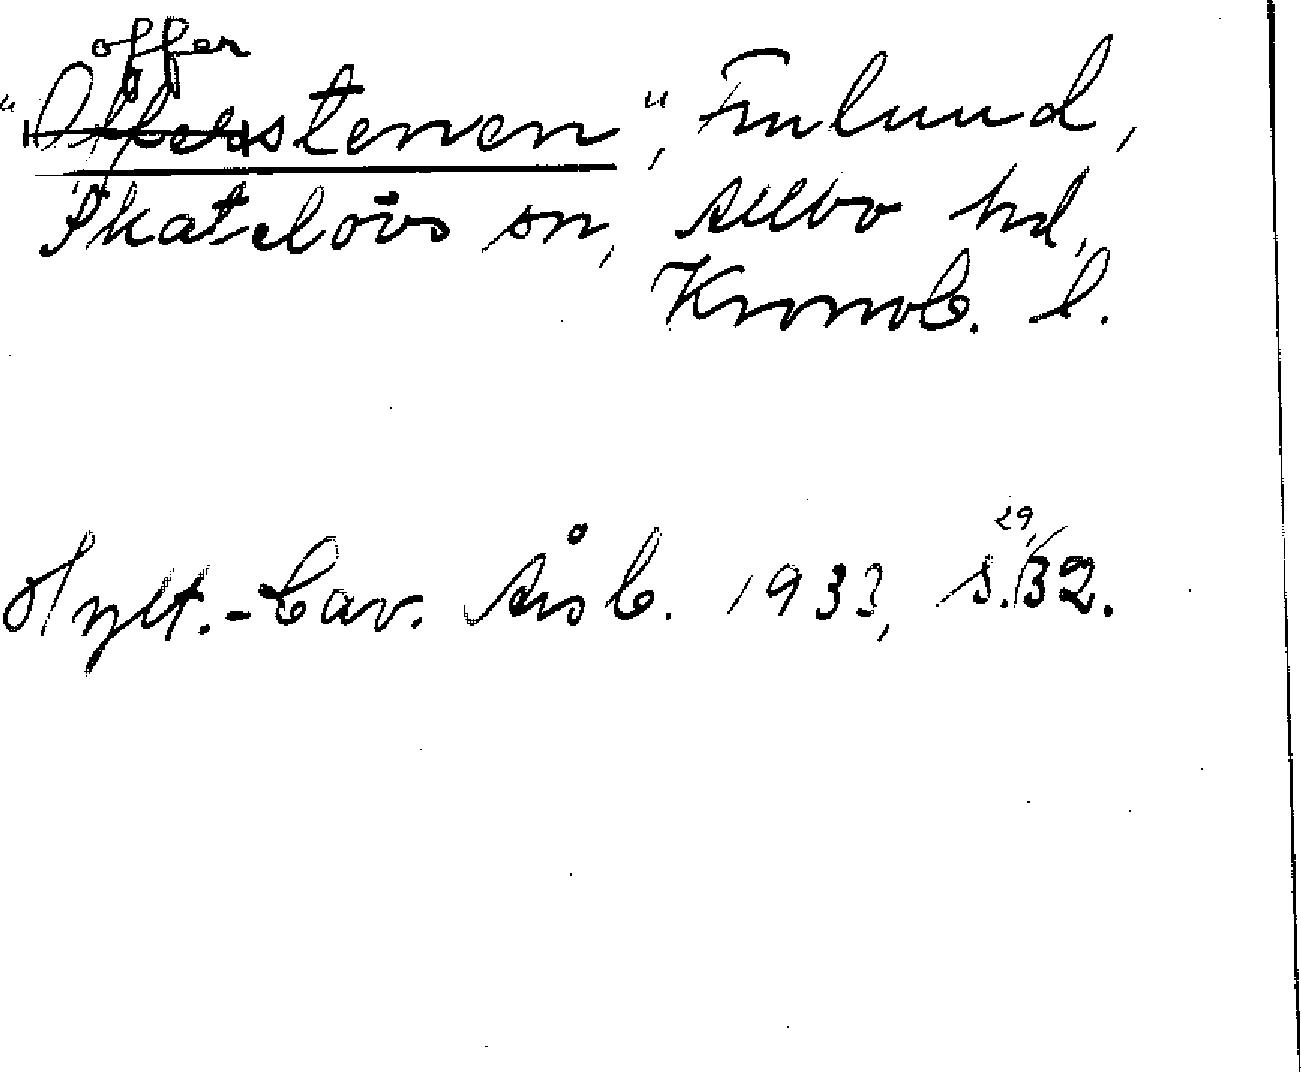 offer
"Offerstenen", Enlund,
Skatelövs sn, Allbo hd,
Kronob. l.
29/
Hylt.-Cav. Årsb. 1933, s. 32.